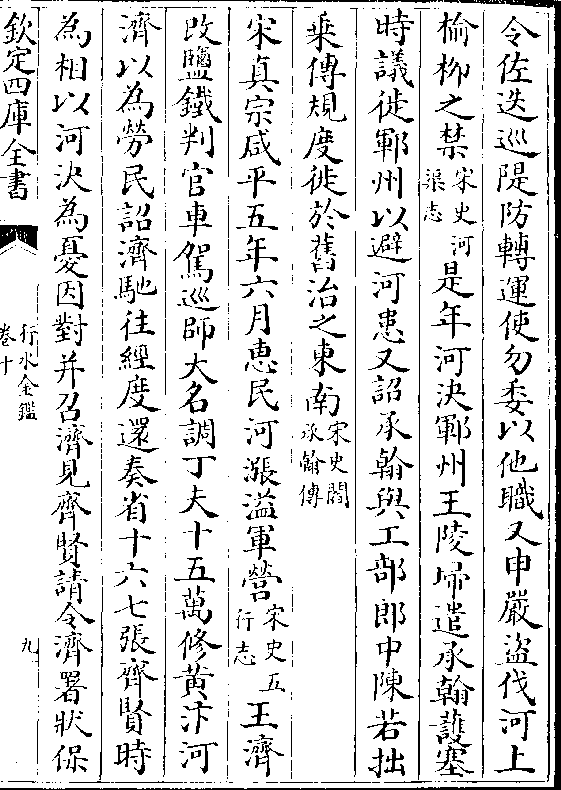 令佐迭巡隄防轉運使勿委以他職又申嚴盜伐河上
榆柳之禁宋史河渠志是年河決鄆州王陵埽遣承翰護塞
時議徙鄆州以避河患又詔承翰與工部郎中陳若拙
乘傳規度徙於舊治之東南宋史閻承翰傳
宋真宗咸平五年六月惠民河漲溢軍營宋史五行志王濟
改鹽鐵判官車駕巡師大名調丁夫十五萬修黃汴河
濟以為勞民詔濟馳往經度還奏省十六七張齊賢時
為相以河決為憂因對并召濟見齊賢請令濟署狀保
欽定四庫全書
行水金鑑
卷十
九